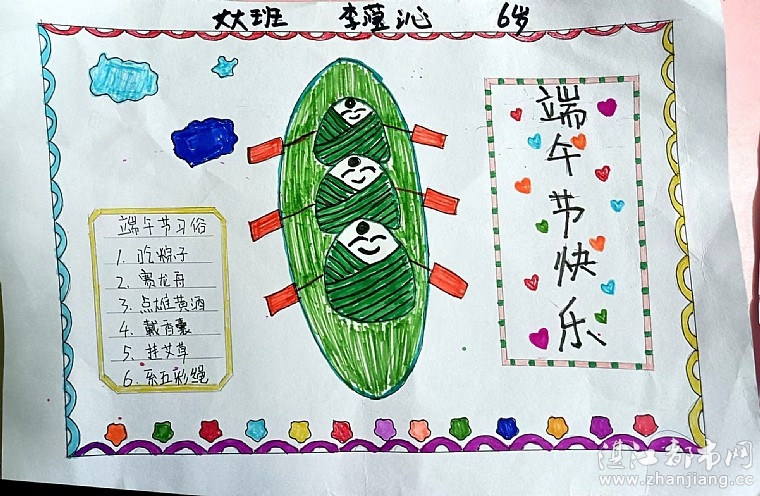 大大班 李蕴沁 6岁
端午节快乐
端午节习俗
1. 吃粽子
2. 赛龙舟
3. 点雄黄酒
4. 戴香囊
5. 挂艾草
6. 系五彩绳
湛江都市网
www.zhanjiang.cc